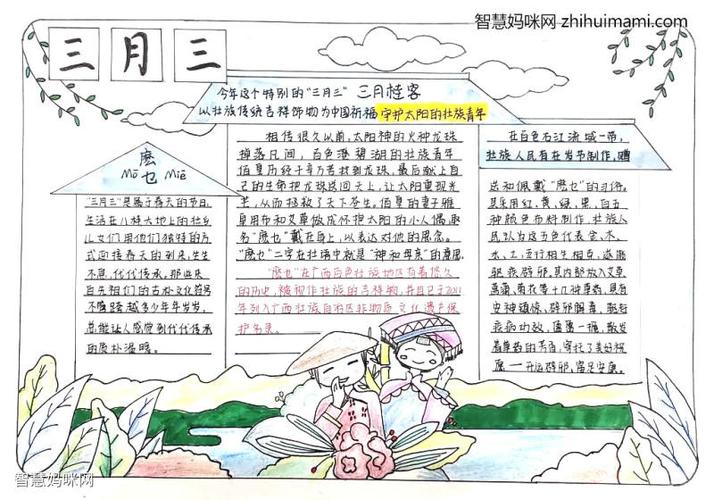 智慧妈咪网 zhihuimami.com
三月三
今年这个特别的“三月三” 三月桂客
以壮族传统吉祥饰物为中国祈福 守护太阳的壮族青年
麽乜
Mō Miē
“三月三”是属于春天的节日。
生活在八桂大地上的壮乡
儿女们用他们独特的方
式迎接春天的到来,生生
不息,代代传承,那些来
自先祖们的古朴文化符号
不管跨越多少年年岁岁,
总能让人感觉到代代传承
的质朴温暖。
相传很久以前,太阳神的火种龙珠
掉落凡间,百色澄碧湖的壮族青年
佰皇历经千辛万苦找到龙珠,最后献上自
己的生命把龙珠送回天上,让太阳重现光
芒,从而拯救了天下苍生。佰皇的妻子雅
皇用布和艾草做成怀抱太阳的小人偶,取
名“麽乜”戴在身上,以表达对他的思念。
“麽乜”二字在壮语中就是“神和母亲”的意思。
“麽乜”在广西百色壮族地区有着悠久
的历史,被视作壮族的吉祥物,并且已于2011
年列入广西壮族自治区非物质文化遗产保
护名录。
在百色右江流域一带,
壮族人民有在农节制作、赠
送和佩戴“麽乜”的习俗。
其采用红、黄、绿、黑、白五
种颜色布料制作,壮族人
民认为这五色代表金、木、
水、土,五行相生相克,逐邪
驱疾辟邪,其内部放入艾草
菖蒲、等十几种草药,具有
安神镇惊,辟邪解毒,驱好
疾病功效,随着一摇,散发
着草药的芳香,寄托了美好祝
愿——开运辟邪,富足安康。
智慧妈咪网